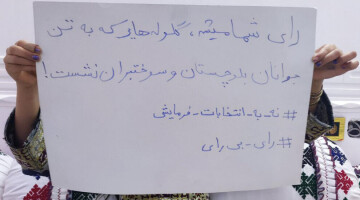 رای شما میشه، گلوله‌هایی که به تن
جوانان بلوچستان و سوختبران نشست!
#نه-به-انتخابات-فرمایشی
#رای-بی-رای